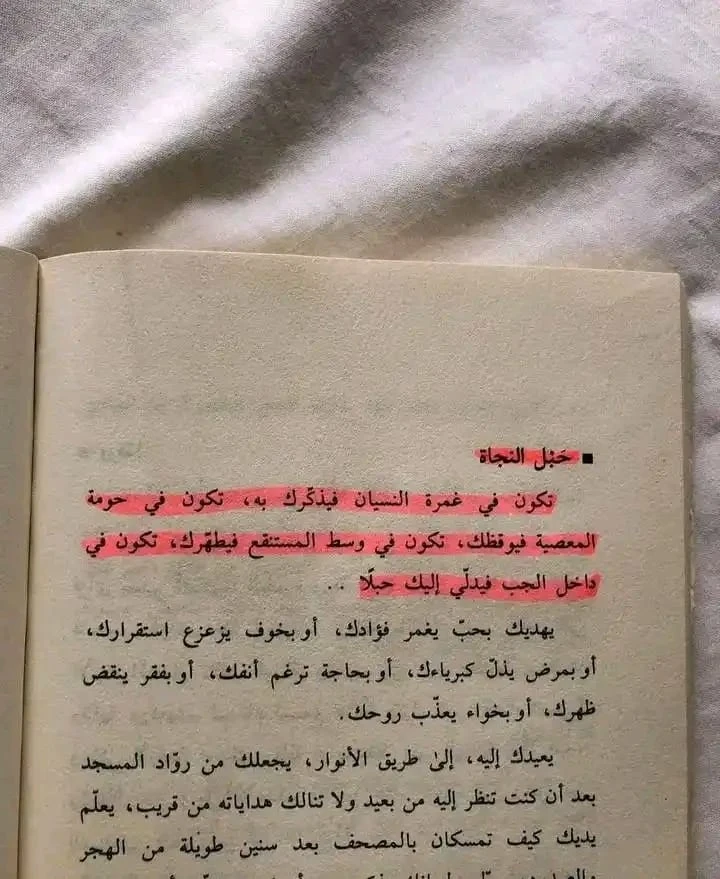 ■ حَبْل النجاة
تكون في غمرة النسيان فيذكّرك به، تكون في حومة
المعصية فيوقظك، تكون في وسط المستنقع فيطهّرك، تكون في
داخل الجب فيدلّي إليك حبلًا ..
يهديك بحبّ يغمر فؤادك، أو بخوف يزعزع استقرارك،
أو بمرض يذلّ كبرياءك، أو بحاجة ترغم أنفك، أو بفقر ينقض
ظهرك، أو بخواء يعذّب روحك.
يعيدك إليه، إلىٰ طريق الأنوار، يجعلك من روّاد المسجد
بعد أن كنت تنظر إليه من بعيد ولا تنالك هداياته من قريب، يعلّم
يديك كيف تمسكان بالمصحف بعد سنين طويلة من الهجر